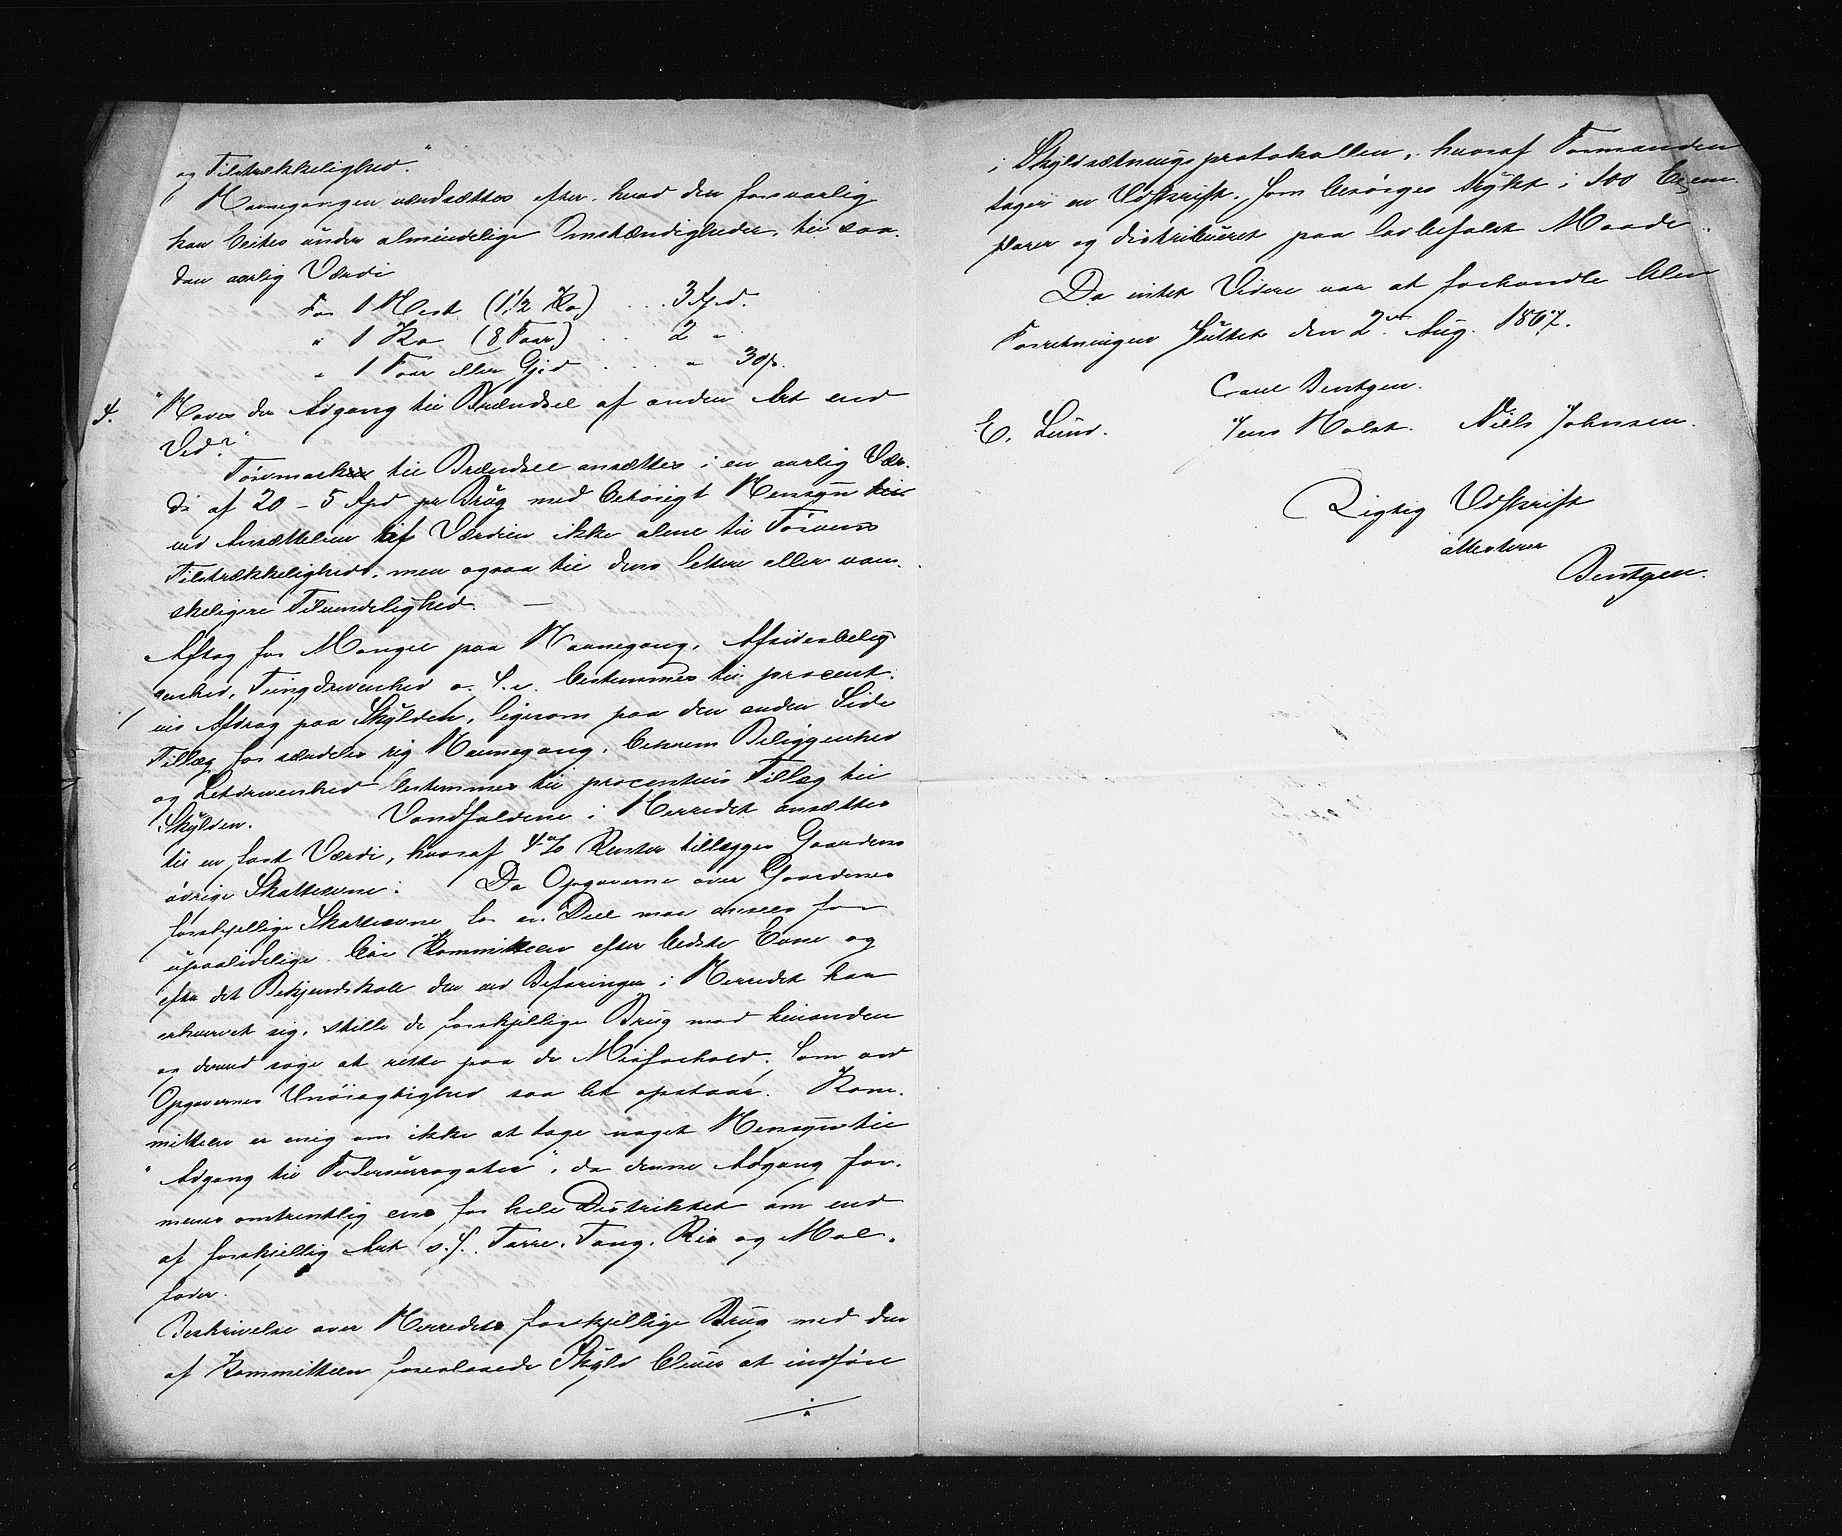 og Tilstrækkelighed."
Havnegangen værdsættes efter, hvad der forsvarlig
kan beites under almindelige Omstændigheder, til saa-
dan aarlig Værdi
For 1 Hest (1½ Ko) . . 3 Spd.
" 1 Ko (8 Faar) . . 2 "
" 1 Faar eller Gjed . . . . " 30 s.
4. "Haves der Adgang til Brændsel af anden Art end
Ved?"
Torvmarker til Brændsel ansættes i en aarlig Vær-
di af 20 - 5 Spd pr Brug med behørigt Hensyn
ved Ansættelsen af Værdien ikke alene til Torvens
Tilstrækkelighed, men ogsaa til dens lettere eller van-
skeligere Tilvendelighed. —
Aftag for Mangel paa Havnegang, Afsidesbelig-
genhed, Tungdrevenhed o. s. v. bestemmes til procent-
vis Afdrag paa Skylden, ligesom paa den anden Side
Tillæg for særdeles rig Havnegang, bekvem Beliggenhed
og Letdrevenhed bestemmes til procentvis Tillæg til
Skylden. Vandfaldene i Herredet ansættes
til en fast Værdi, hvoraf 4% Renter tillægges Gaardens
øvrige Skatteevne. Da Opgaverne over Gaardenes
forskjellige Skatteevne for en Deel maa ansees for
upaalidelige, bør Kommitteen efter bedste Evne og
efter det Bekjendtskab den ved Befaringen i Herredet har
erhvervet sig, stille de forskjellige Brug mod hinanden
og derved søge at rette paa de Misforhold, som ved
Opgavernes Unøiagtighed saa let opstaar. Kom-
mitteen er enig om ikke at tage noget Hensyn til
"Adgang til Fodersurrogater", da denne Adgang for-
menes omtrentlig ens for hele Distriktet om end
af forskjellig Art s. s. Tarre, Tang, Ris og Mol-
foder.
Beskrivelse over Herredets forskjellige Brug med den
af Kommitteen foreslaaede Skyld bliver at indføre
./.
i Skyldsætningsprotokollen, hvoraf Formanden
tager en Udskrift, som besørges trykt i 100 Exem-
plarer og distribueret paa lovbefalet Maade.
Da intet Videre var at forhandle blev
Forretningen sluttet den 2den Aug. 1867.
Carl Bentzen.
E. Lund. Jens Holst. Niels Johnsen.
Rigtig Udskrift
attesterer
Bentzen.